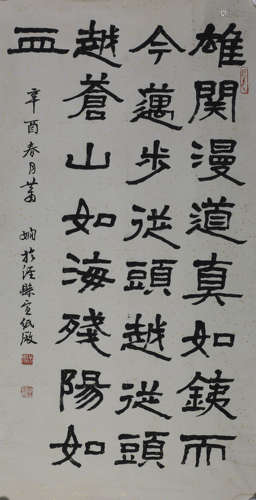 雄関漫道真如銕而
今邁步從頭越從頭
越蒼山如海殘陽如
血
辛酉春月蕭嫻於涇縣宣紙廠